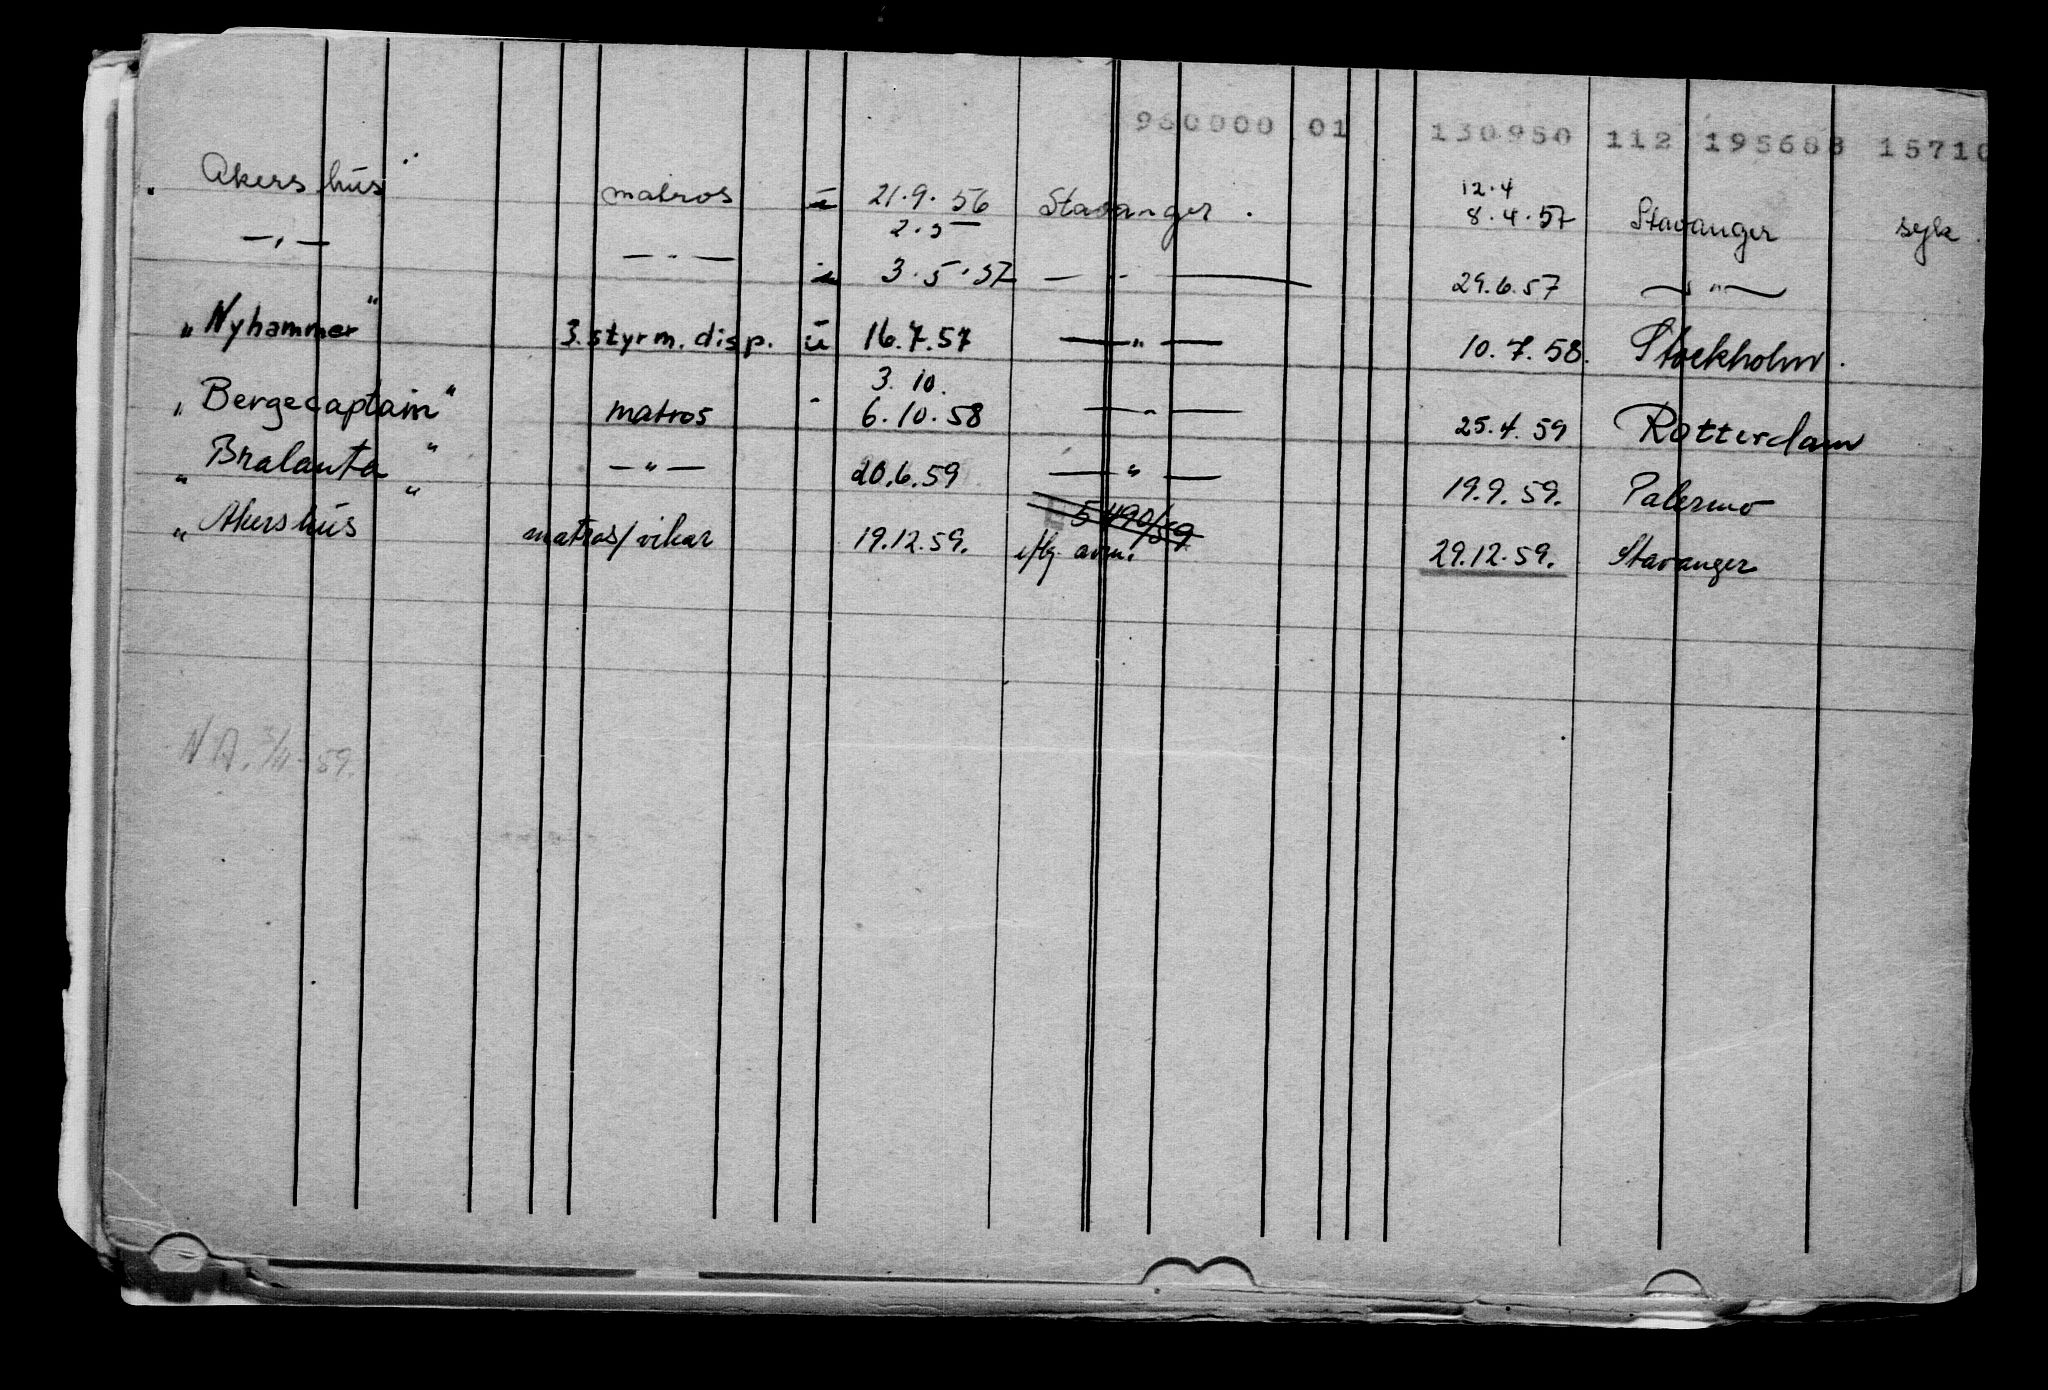 960000 01 130950 112 195688 15710
12.4
Akershus" matros u 21.9.56 Stavanger. 8.4.57 Stavanger syk.
2.5
—"— —"— u 3.5.57 —"— 29.6.57 —"—
"Nyhammer" 3. styrm. disp. u 16.7.57 —"— 10.7.58. Stockholm.
3.10.
"Bergecaptain" matros " 6.10.58 —"— 25.4.59 Rotterdam
"Bralanta" —"— 20.6.59 —"— 19.9.59. Palermo
5490/59
"Akershus" matros/vikar 19.12.59. iflg avm. 29.12.59. Stavanger
N A. 3/11-59.